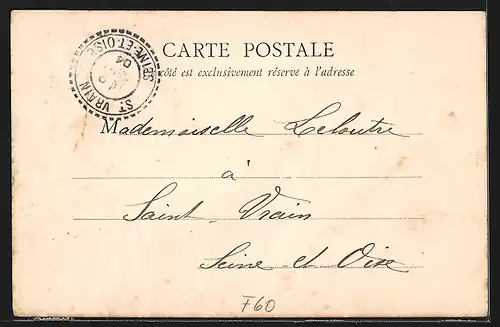 CARTE POSTALE
côté est exclusivement réservé à l'adresse
ST VRAIN
SEINE-ET-OISE
04
Mademoiselle Leloutre
à
Saint-Vrain
Seine et Oise
F60